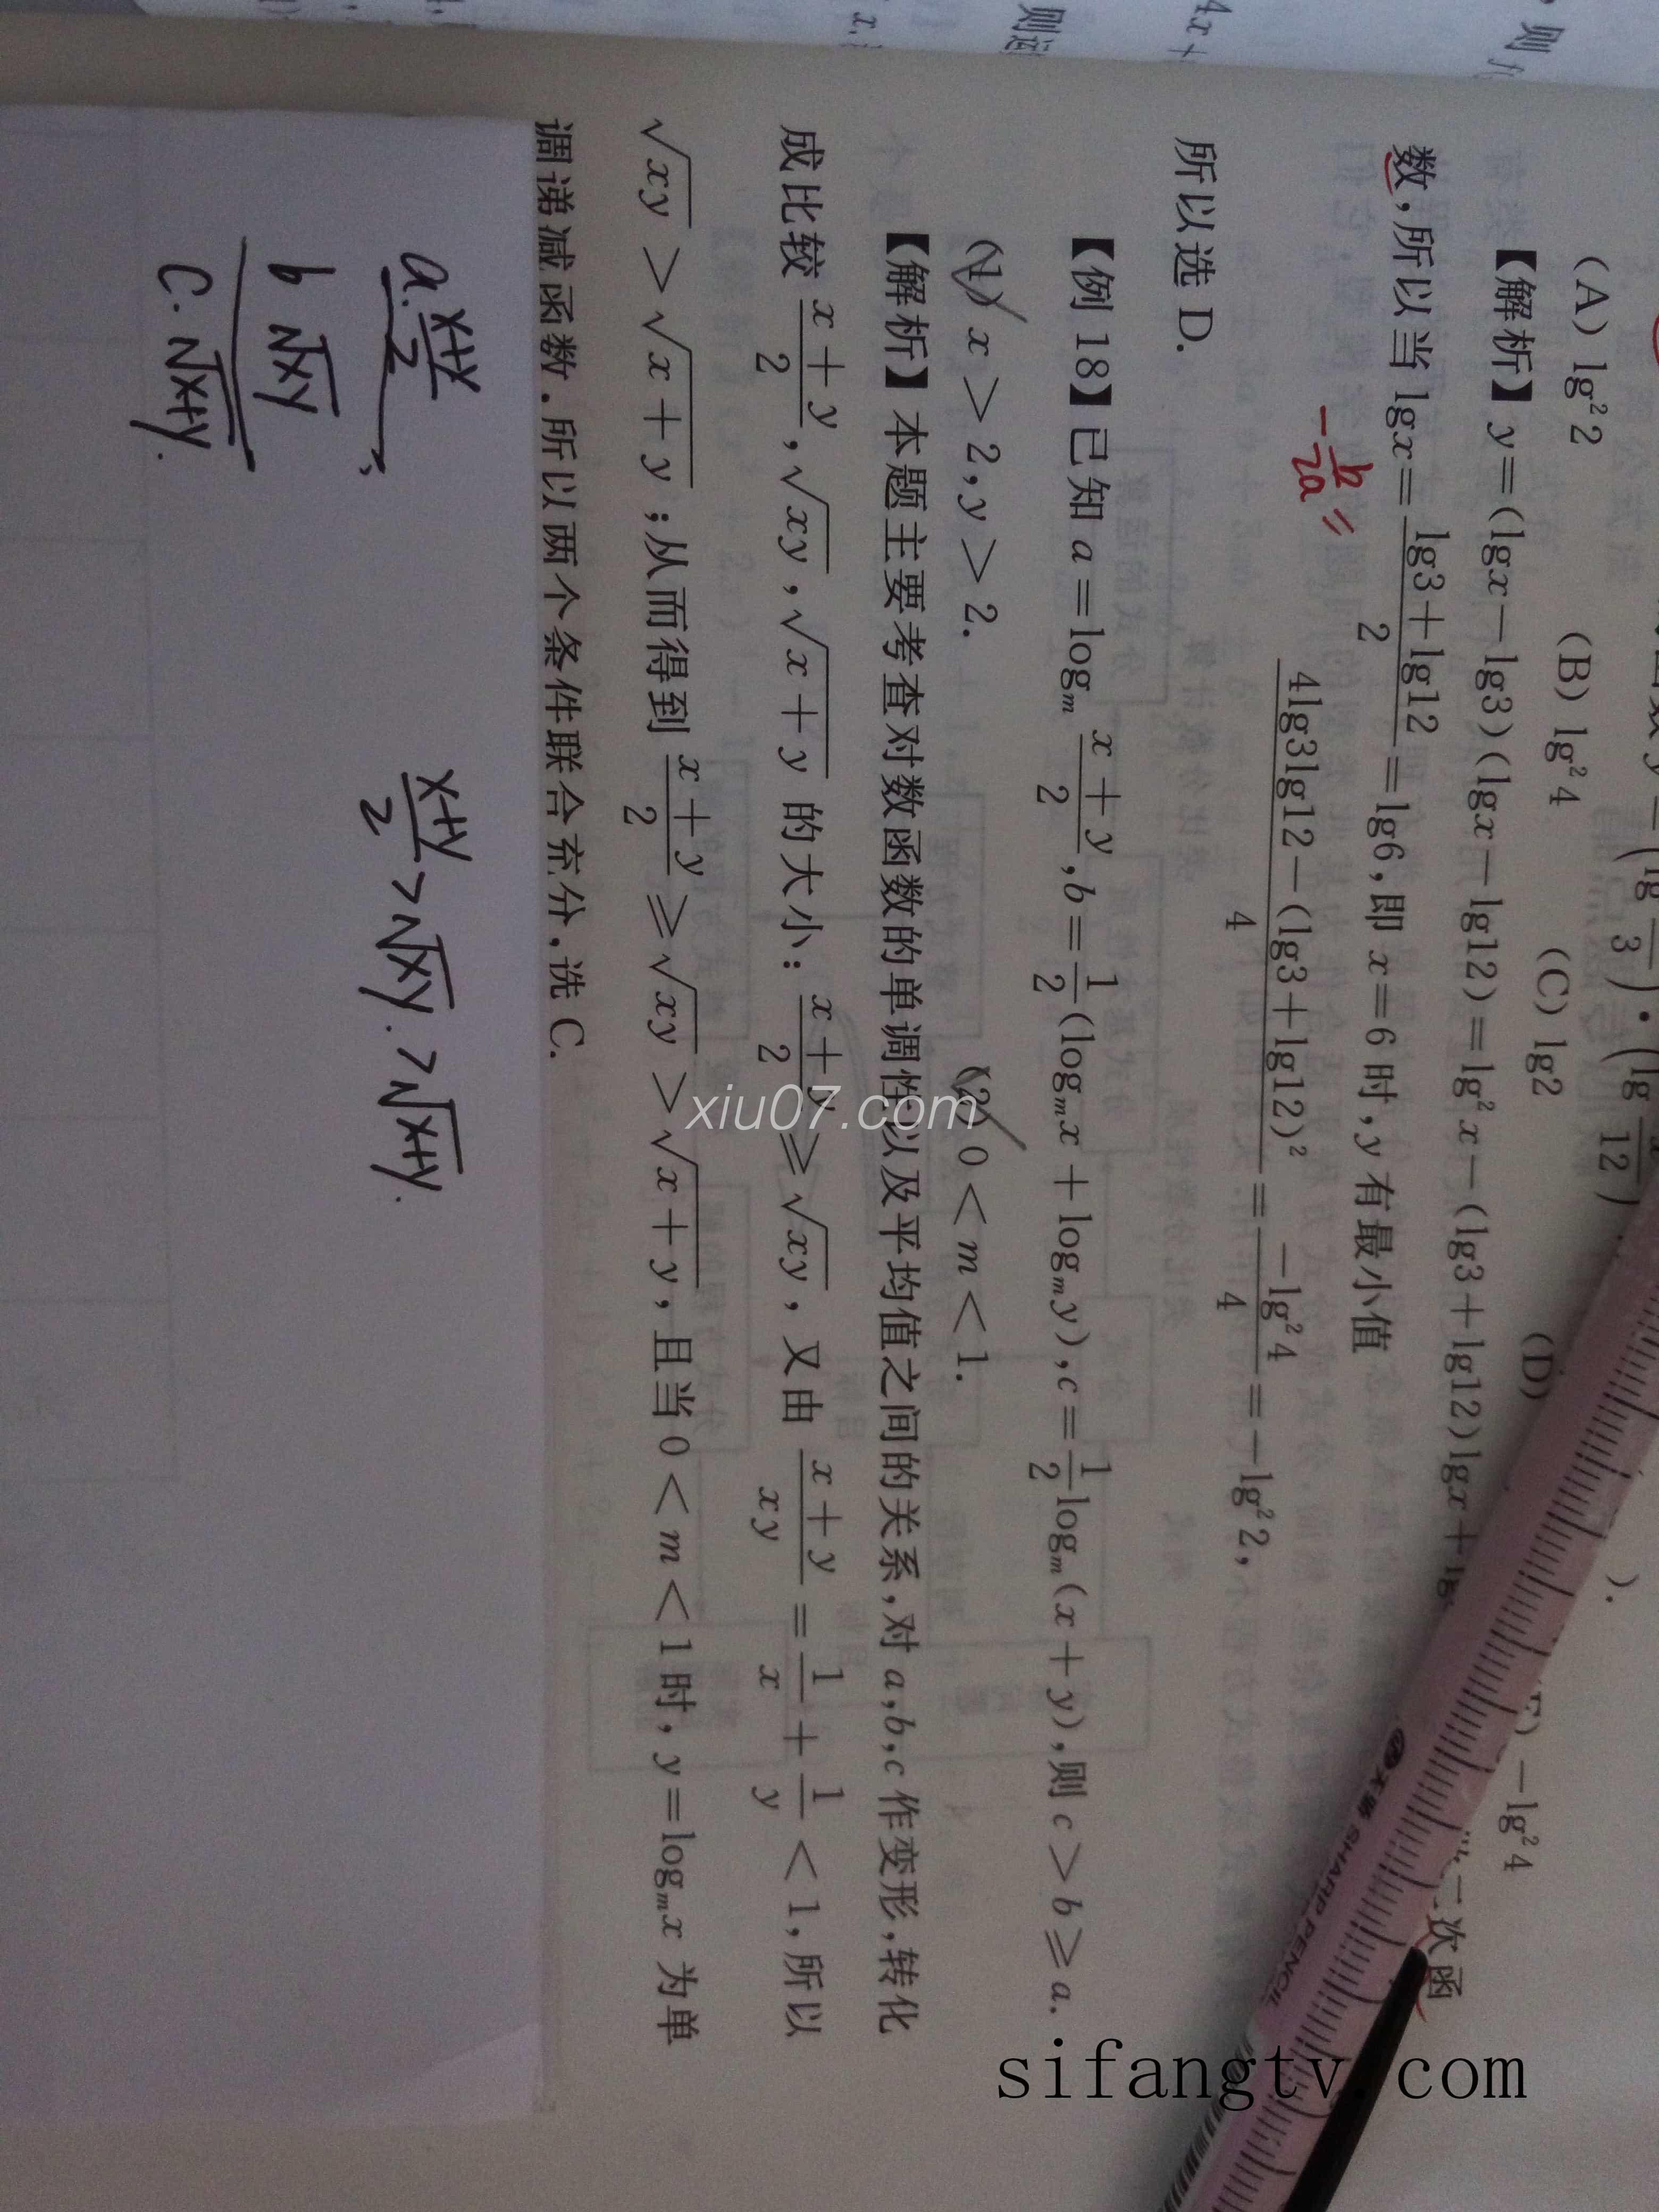 (A) lg²2 (B) lg²4 (C) lg2 (D) −lg²4
【解析】y=(lgx−lg3)(lgx−lg12)=lg²x−(lg3+lg12)lgx+
二次函
数,所以当 lgx=\frac{lg3+lg12}{2}=lg6,即 x=6 时,y 有最小值
−\frac{b}{2a}=
\frac{4lg3lg12−(lg3+lg12)²}{4}=\frac{−lg²4}{4}=−lg²2,
所以选 D.
【例 18】已知 a=log_m\frac{x+y}{2},b=\frac{1}{2}(log_m x+log_m y),c=\frac{1}{2}log_m(x+y),则 c>b≥a.
(1) x>2,y>2. (2) 0<m<1.
【解析】本题主要考查对数函数的单调性以及平均值之间的关系,对 a,b,c 作变形,转化
成比较\frac{x+y}{2},√(xy),√(x+y) 的大小:\frac{x+y}{2}≥√(xy),又由\frac{x+y}{xy}=\frac{1}{x}+\frac{1}{y}<1,所以
√(xy)>√(x+y);从而得到\frac{x+y}{2}≥√(xy)>√(x+y),且当 0<m<1 时,y=log_m x 为单
调递减函数.所以两个条件联合充分.选 C.
a.\frac{x+y}{2}
b √(xy)
c.√(x+y).
\frac{x+y}{2}>√(xy).>√(x+y).
SHARP PENCIL
xiu07.com
sifangtv.com